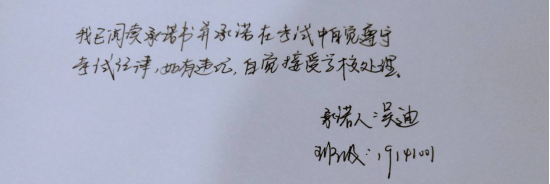 我已阅读承诺书并承诺在考试中自觉遵守
考试纪律,如有违纪,自觉接受学校处理。
承诺人:吴迪
班级:19141001